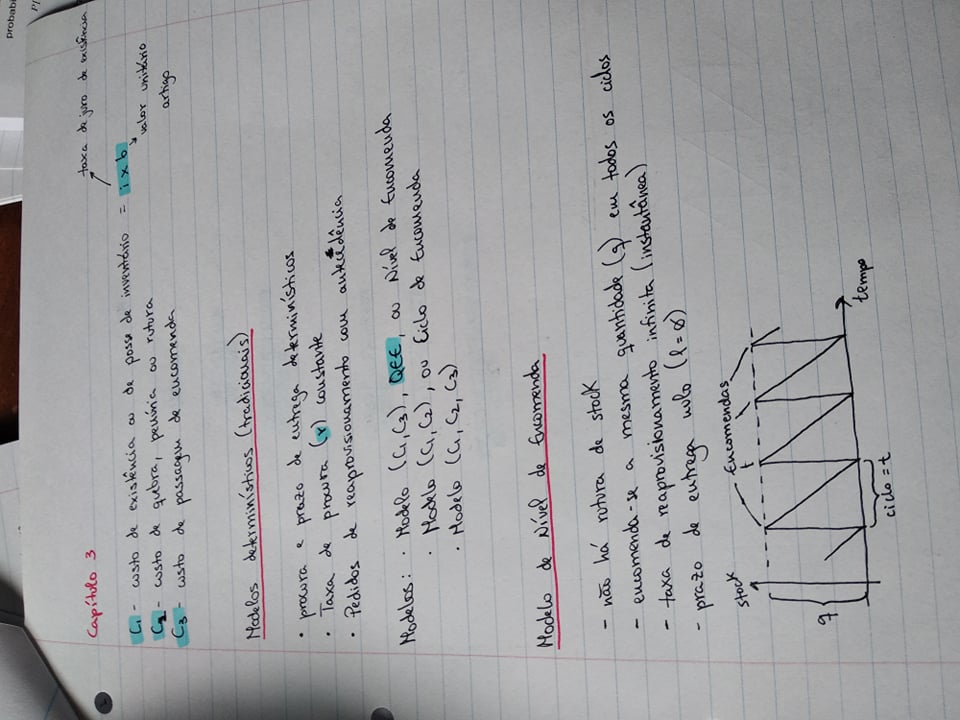 probabi
P(
Capítulo 3
taxa de juro de existência
C1 - custo de existência ou de posse de inventário = i x b
valor unitário
artigo
C2 - custo de quebra, penúria ou rutura
C3 - custo de passagem de encomenda
Modelos determinísticos (tradicionais)
• procura e prazo de entrega determinísticos
• Taxa de procura (r) constante
• Pedidos de reaprovisionamento com antecedência
Modelos: • Modelo (C1, C3), QEE, ou Nível de Encomenda
• Modelo (C1, C2), ou Ciclo de Encomenda
• Modelo (C1, C2, C3)
Modelo de Nível de Encomenda
- não há rutura de stock
- encomenda-se a mesma quantidade (q) em todos os ciclos
- taxa de reaprovisionamento infinita (instantânea)
- prazo de entrega nulo (l = ø)
stock
Encomendas
q
tempo
ciclo = t